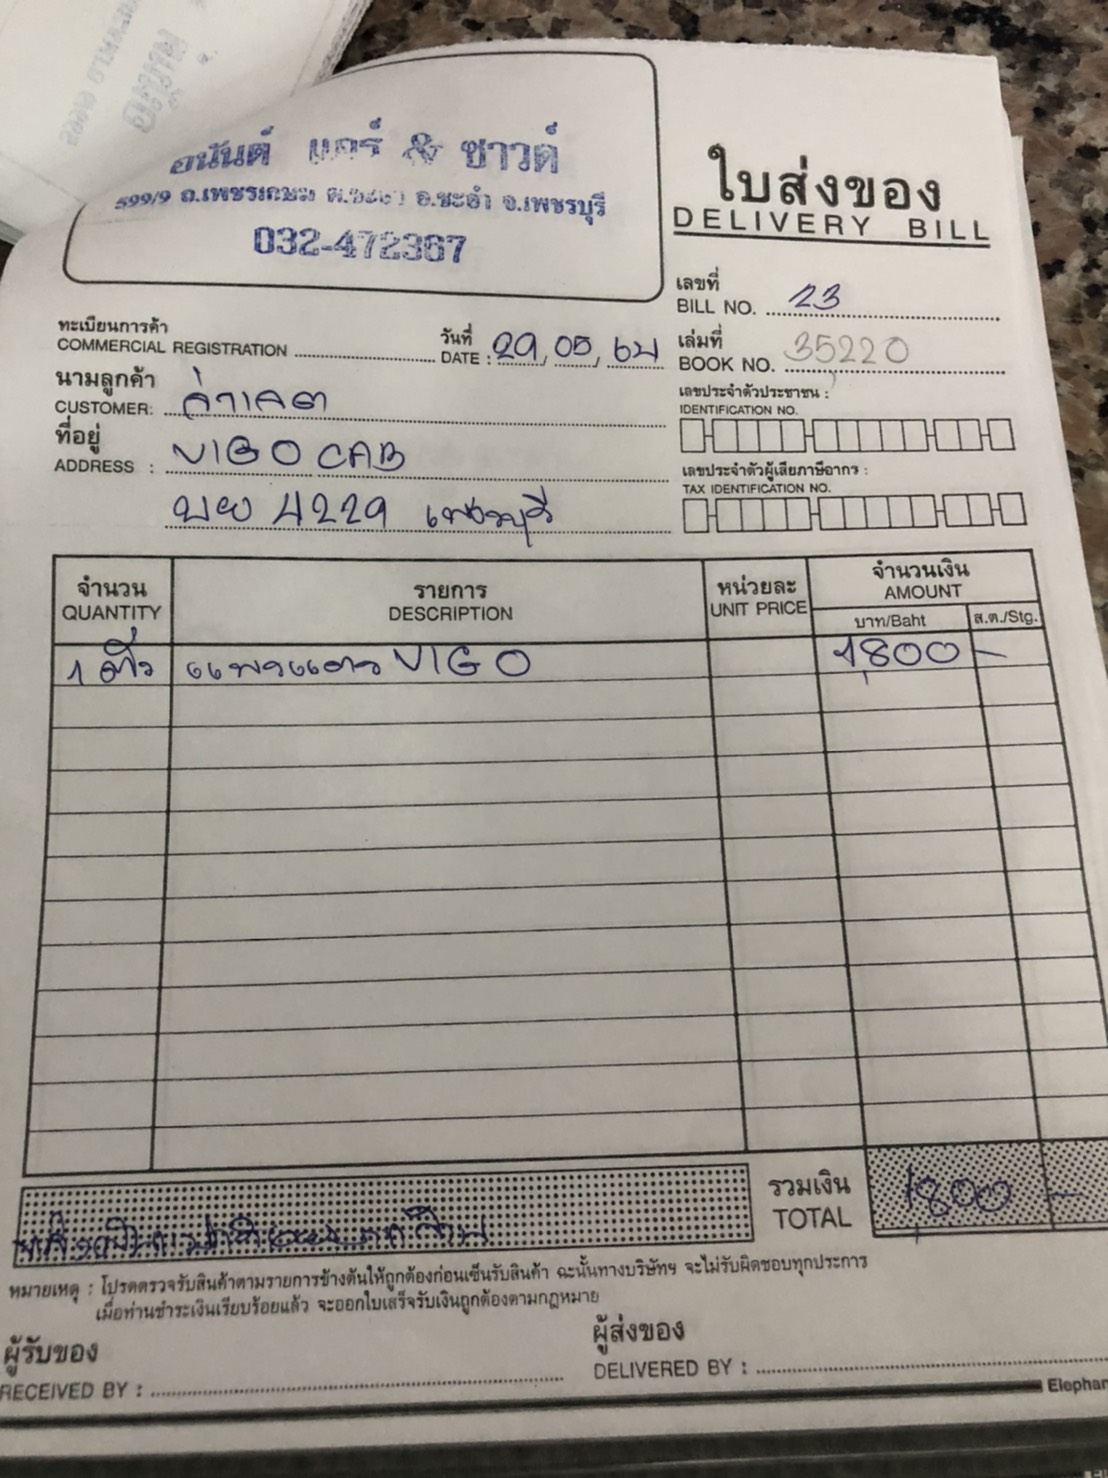 อนันต์ แอร์ & ซาวด์
599/9 ถ.เพชรเกษม ต.ชะอำ อ.ชะอำ จ.เพชรบุรี
032-472367
ใบส่งของ
DELIVERY BILL
เลขที่
BILL NO. 23
ทะเบียนการค้า
COMMERCIAL REGISTRATION
วันที่
DATE : 29, 05, 64
เล่มที่
BOOK NO. 35220
นามลูกค้า
CUSTOMER:
เลขประจำตัวประชาชน :
IDENTIFICATION NO.
ที่อยู่
ADDRESS : VIGO CAB
4229 เพชรบุรี
เลขประจำตัวผู้เสียภาษีอากร :
TAX IDENTIFICATION NO.
จำนวน
QUANTITY
รายการ
DESCRIPTION
หน่วยละ
UNIT PRICE
จำนวนเงิน
AMOUNT
บาท/Baht ส.ต./Stg.
1 ตัว VIGO 1,800 -
รวมเงิน
TOTAL 1,800 -
หมายเหตุ : โปรดตรวจรับสินค้าตามรายการข้างต้นให้ถูกต้องก่อนเซ็นรับสินค้า ฉะนั้นทางบริษัทฯ จะไม่รับผิดชอบทุกประการ
เมื่อท่านชำระเงินเรียบร้อยแล้ว จะออกใบเสร็จรับเงินถูกต้องตามกฎหมาย
ผู้รับของ
RECEIVED BY :
ผู้ส่งของ
DELIVERED BY :
Elephan